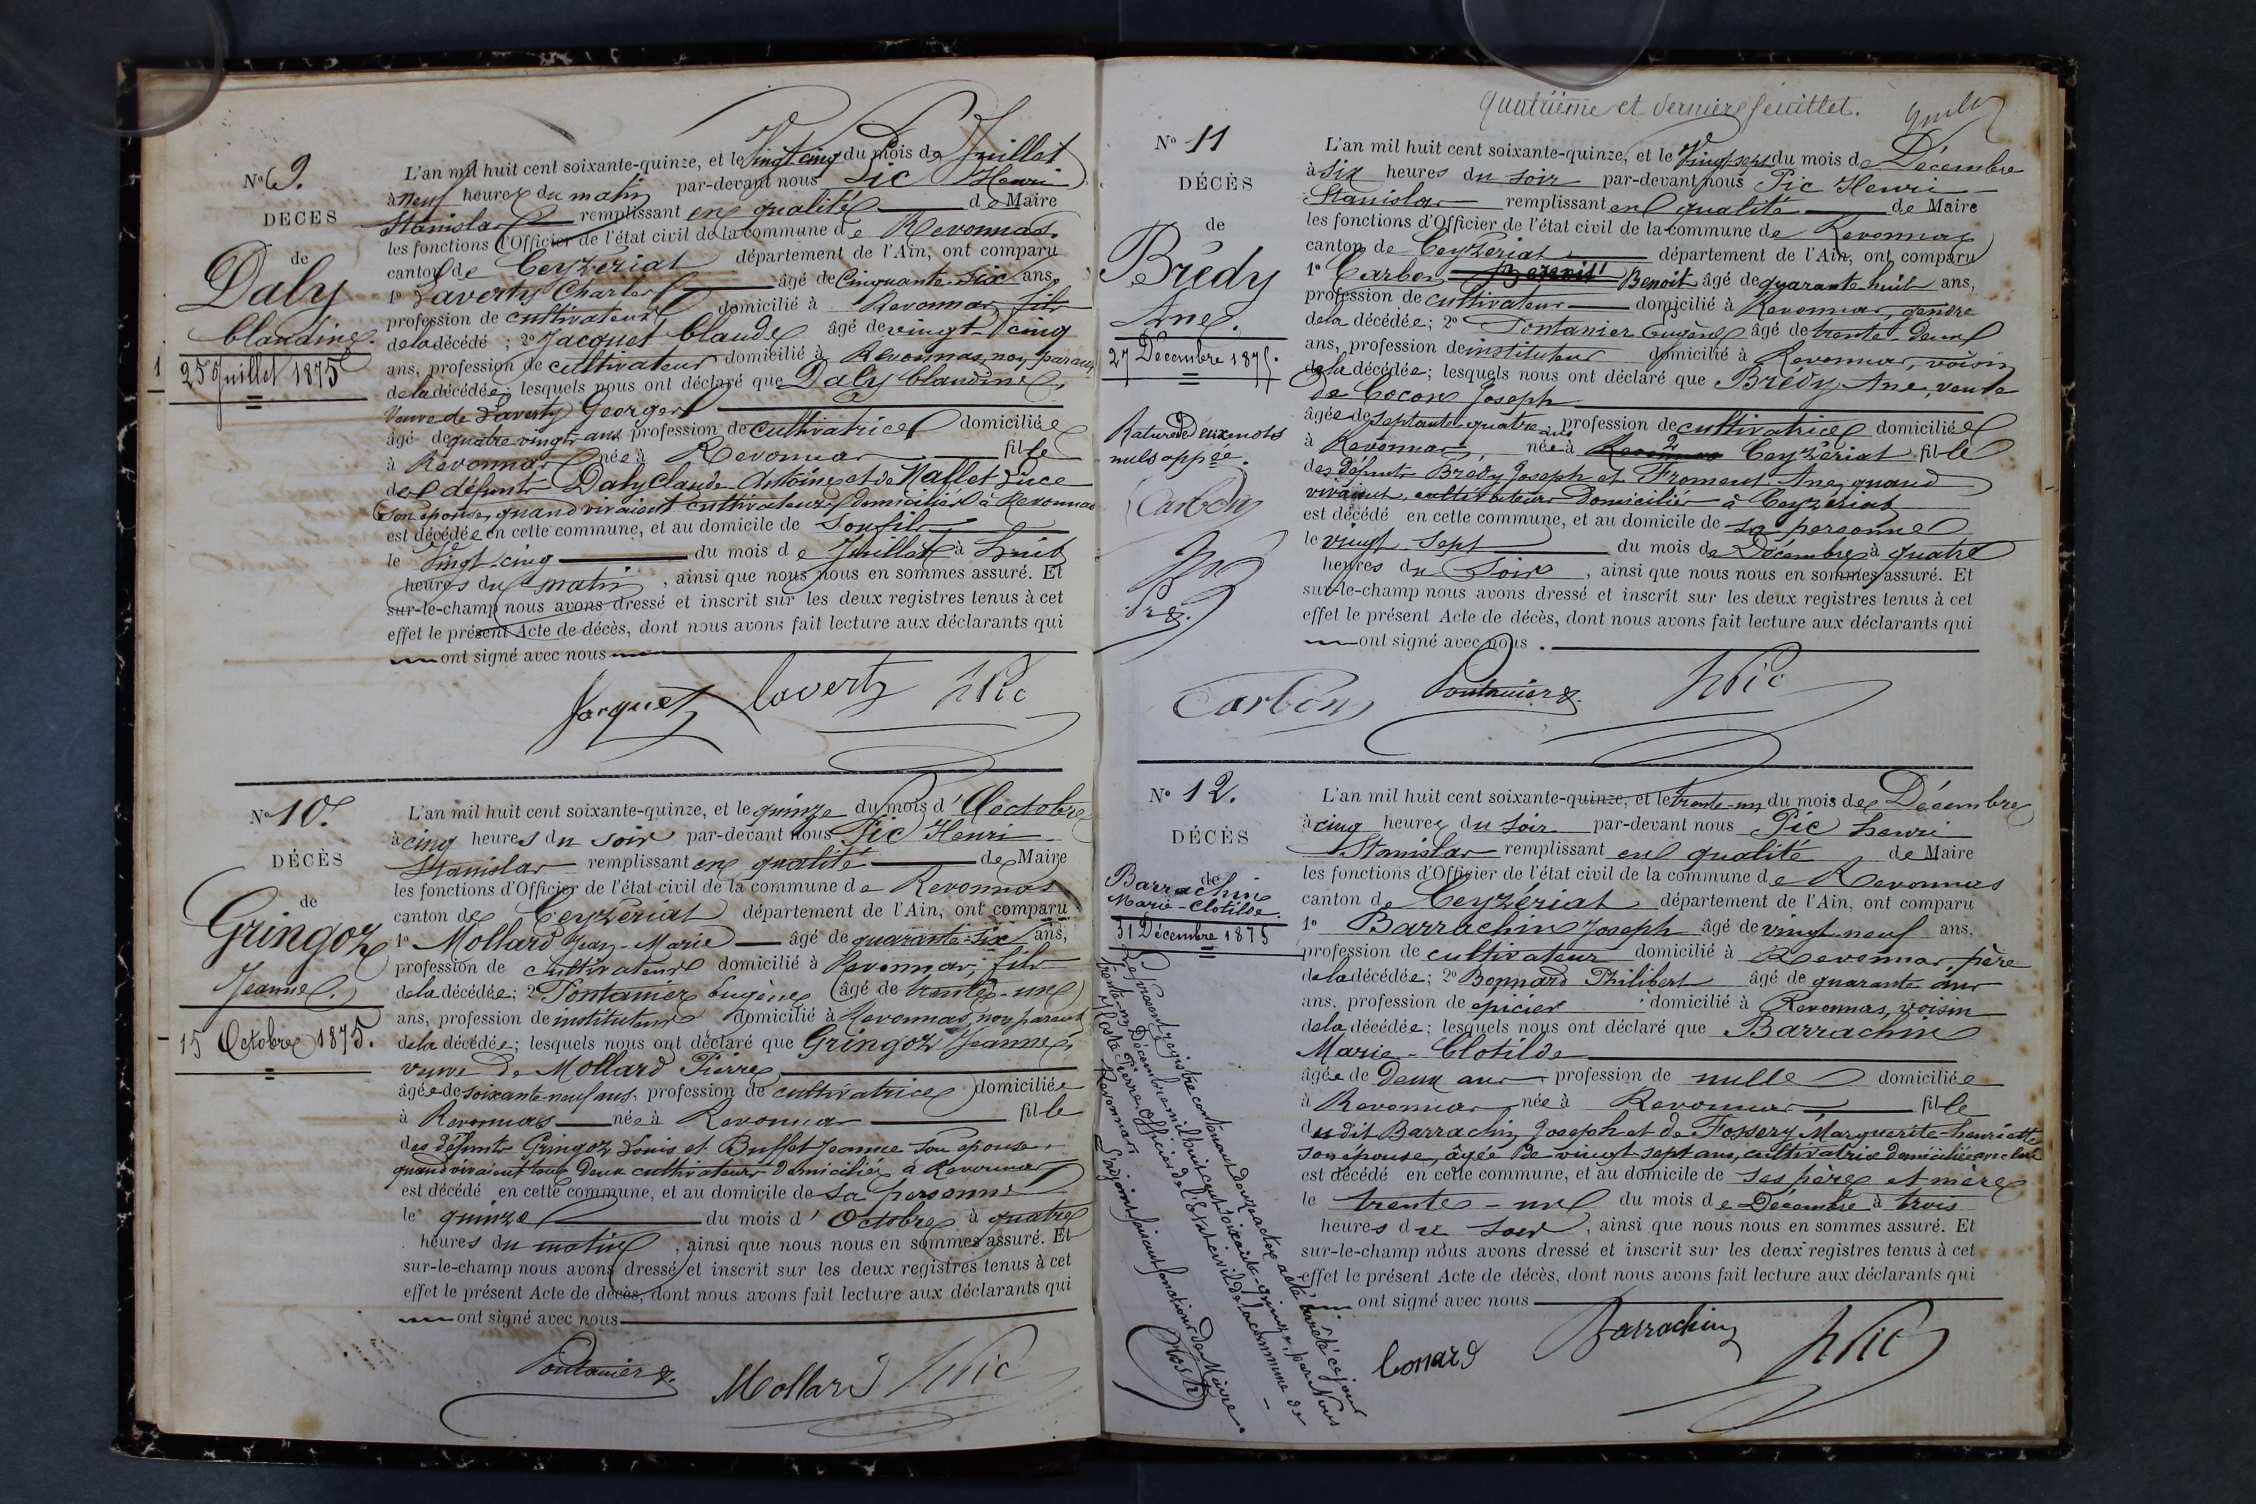 No 9.
DÉCÈS
de
Daly
Claudine.
25 Juillet 1875
L'an mil huit cent soixante-quinze, et le Vingt cinq du mois de Juillet
à neuf heures du matin par-devant nous Pic Henri
Stanislas remplissant en qualité de Maire
les fonctions d'Officier de l'état civil de la commune de Revonnas.
canton de Ceyzériat département de l'Ain, ont comparu
1o Laverty Charles âgé de Cinquante six ans,
profession de cultivateur domicilié à Revonnas, fils
de la décédé ; 2o Jacquet Claude âgé de vingt cinq
ans, profession de cultivateur domicilié à Revonnas, non parent
de la décédée; lesquels nous ont déclaré que Daly Claudine,
Veuve de Laverty Georges
âgé de quatre vingts ans profession de cultivatrice domiciliée
à Revonnas née à Revonnas fille
des défunts Daly Claude Antoine et de Mallet Luce
son épouse, quand vivaient cultivateurs domiciliés à Revonnas
est décédée en cette commune, et au domicile de son fils
le Vingt-cinq du mois de Juillet à huit
heures du matin, ainsi que nous nous en sommes assuré. Et
sur-le-champ nous avons dressé et inscrit sur les deux registres tenus à cet
effet le présent Acte de décès, dont nous avons fait lecture aux déclarants qui
ont signé avec nous
Jacquet Laverty H Pic
No 10.
DÉCÈS
de
Gringoz
Jeanne.
15 Octobre 1875.
L'an mil huit cent soixante-quinze, et le quinze du mois d'Octobre
à cinq heures du soir par-devant nous Pic Henri
Stanislas remplissant en qualité de Maire
les fonctions d'Officier de l'état civil de la commune de Revonnas
canton de Ceyzériat département de l'Ain, ont comparu
1o Mollard Jean-Marie âgé de quarante-six ans,
profession de cultivateur domicilié à Revonnas, fils
de la décédée; 2o Fontanier Eugène âgé de trente-un
ans, profession de instituteur domicilié à Revonnas, non parent
de la décédée; lesquels nous ont déclaré que Gringoz Jeanne,
veuve de Mollard Pierre
âgée de soixante-neuf ans, profession de cultivatrice domiciliée
à Revonnas née à Revonnas fille
des défunts Gringoz Louis et Buffet Jeanne son épouse,
quand vivaient tous deux cultivateurs domiciliés à Revonnas
est décédé en cette commune, et au domicile de sa personne
le quinze du mois d'Octobre à quatre
heures du matin, ainsi que nous nous en sommes assuré. Et
sur-le-champ nous avons dressé et inscrit sur les deux registres tenus à cet
effet le présent Acte de décès, dont nous avons fait lecture aux déclarants qui
ont signé avec nous
Fontanier E. Mollard H Pic
Quatrième et dernier feuillet.
No 11
DÉCÈS
de
Brédy
Ane.
27 Décembre 1875.
Rature de deux mots
nuls appée.
Carbon
L'an mil huit cent soixante-quinze, et le Vingt-sept du mois de Décembre
à six heures du soir par-devant nous Pic Henri
Stanislas remplissant en qualité de Maire
les fonctions d'Officier de l'état civil de la commune de Revonnas
canton de Ceyzériat département de l'Ain, ont comparu
1o Carbon Benoit âgé de quarante-huit ans,
profession de cultivateur domicilié à Revonnas, gendre
de la décédée; 2o Fontanier Eugène âgé de trente-deux
ans, profession de instituteur domicilié à Revonnas, voisin
de la décédée; lesquels nous ont déclaré que Brédy Ane, veuve
de Cocon Joseph
âgée de septante-quatre ans profession de cultivatrice domiciliée
à Revonnas, née à Revonnas Ceyzériat fille
des défunts Brédy Joseph et Froment Ane, quand
vivaient, cultivateurs domiciliés à Ceyzériat
est décédé en cette commune, et au domicile de sa personne
le vingt-sept du mois de Décembre à quatre
heures du Soir, ainsi que nous nous en sommes assuré. Et
sur-le-champ nous avons dressé et inscrit sur les deux registres tenus à cet
effet le présent Acte de décès, dont nous avons fait lecture aux déclarants qui
ont signé avec nous.
Carbon Fontanier E. H Pic
No 12.
DÉCÈS
de
Barrachin
Marie-Clotilde.
31 Décembre 1875
L'an mil huit cent soixante-quinze, et le trente-un du mois de Décembre
à cinq heures du soir par-devant nous Pic henri
Stanislas remplissant en qualité de Maire
les fonctions d'Officier de l'état civil de la commune de Revonnas
canton de Ceyzériat département de l'Ain, ont comparu
1o Barrachin Joseph âgé de vingt-neuf ans,
profession de cultivateur domicilié à Revonnas, père
de la décédée; 2o Bonnard Philibert âgé de quarante
ans, profession de épicier domicilié à Revonnas, voisin
de la décédée; lesquels nous ont déclaré que Barrachin
Marie-Clotilde
âgée de Deux ans profession de nulle domiciliée
à Revonnas née à Revonnas fille
du dit Barrachin Joseph et de Fossery Marguerite-henriette
son épouse, âgée de vingt sept ans, cultivatrice domiciliée avec lui
est décédé en cette commune, et au domicile de ses père et mère
le trente-un du mois de Décembre à trois
heures du soir, ainsi que nous nous en sommes assuré. Et
sur-le-champ nous avons dressé et inscrit sur les deux registres tenus à cet
effet le présent Acte de décès, dont nous avons fait lecture aux déclarants qui
ont signé avec nous
Bonard Barrachin H Pic
Le présent registre contenant douze actes a été arrêté ce jour
trente-un Décembre mil huit cent soixante-quinze, par Nous
Pierre, Officier de l'état civil de la commune de
Revonnas faisant fonctions de Maire.